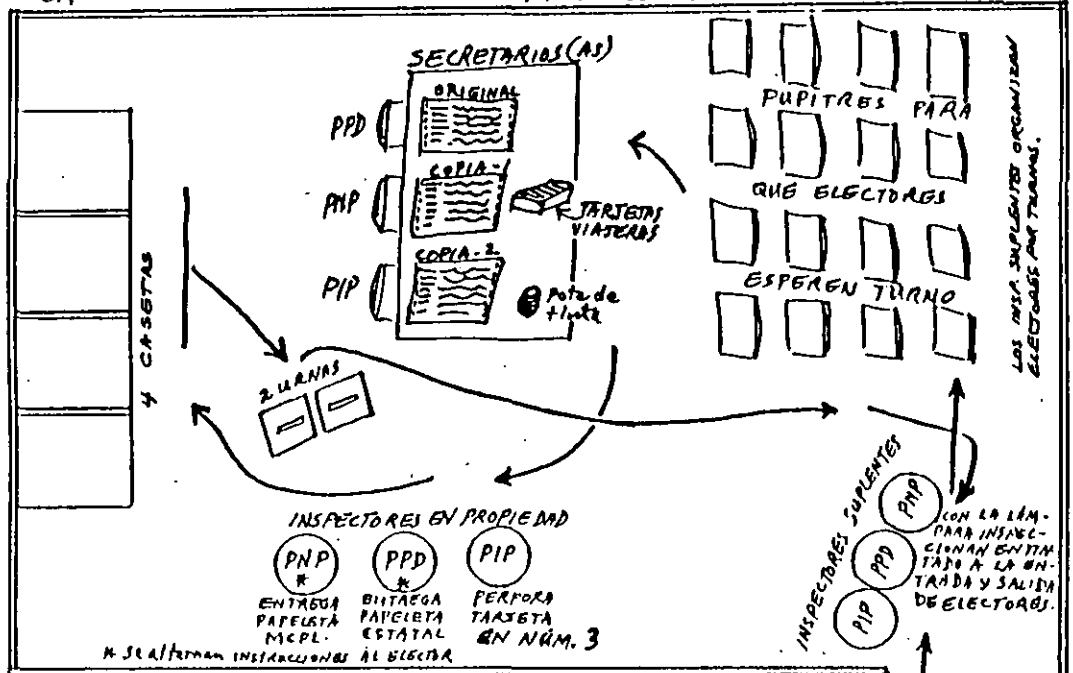 SECRETARIOS(AS)
PPD
ORIGINAL
PNP
COPIA-1
TARJETAS
VIAJERAS
PIP
COPIA-2
Pote de
tinta
PUPITRES PARA
QUE ELECTORES
ESPEREN TURNO
LOS INSP. SUPLENTES ORGANIZAN
ELECTORES POR TURNOS.
4 CASETAS
2 URNAS
INSPECTORES EN PROPIEDAD
PNP
*
ENTREGA
PAPELETA
MCPL.
PPD
*
ENTREGA
PAPELETA
ESTATAL
PIP
PERFORA
TARJETA
EN NÚM. 3
* Se alternan INSTRUCCIONES AL ELECTOR
INSPECTORES SUPLENTES
PNP
PPD
PIP
CON LA LÁM-
PARA INSPEC-
CIONAN ENTIN-
TADO A LA EN-
TRADA Y SALIDA
DE ELECTORES.